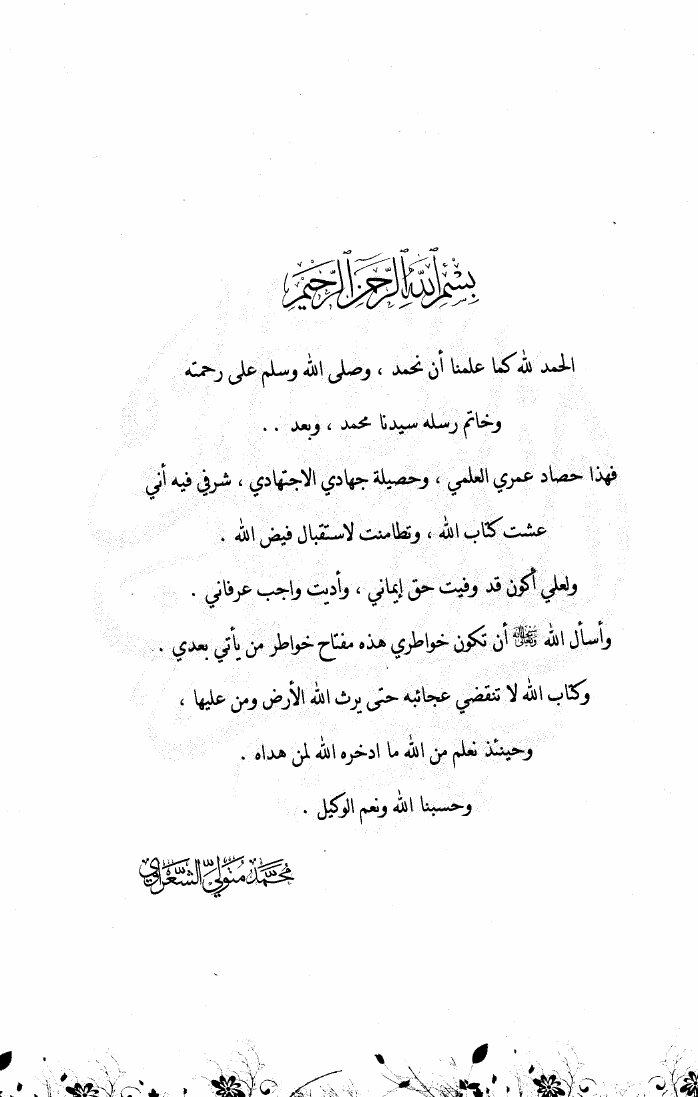 بسم الله الرحمن الرحيم
الحمد لله كما علمنا أن نحمد ، وصلى الله وسلم على رحمته
وخاتم رسله سيدنا محمد ، وبعد . .
فهذا حصاد عمري العلمي ، وحصيلة جهادي الاجتهادي ، شرفي فيه أني
عشت كتاب الله ، وتطامنت لاستقبال فيض الله .
ولعلي أكون قد وفيت حق إيماني ، وأديت واجب عرفاني .
وأسأل الله أن تكون خواطري هذه مفتاح خواطر من يأتي بعدي .
وكتاب الله لا تنقضي عجائبه حتى يرث الله الأرض ومن عليها ،
وحينئذ نعلم من الله ما ادخره الله لمن هداه .
وحسبنا الله ونعم الوكيل .
محمد متولي الشعراوي